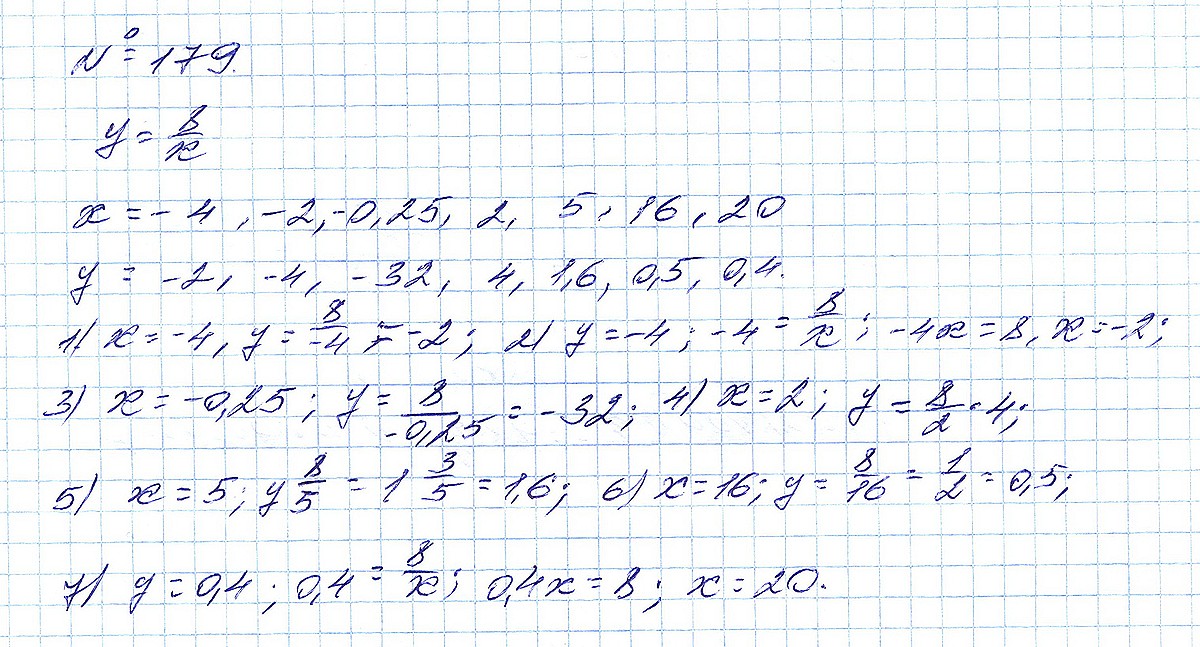 № 179.
y = 8/x
x = -4, -2, -0,25, 2, 5, 16, 20
y = -2, -4, -32, 4, 1,6, 0,5, 0,4.
1) x = -4, y = 8/-4 = -2; 2) y = -4; -4 = 8/x; -4x = 8, x = -2;
3) x = -0,25; y = 8/-0,25 = -32; 4) x = 2; y = 8/2 = 4;
5) x = 5; y 8/5 = 1 3/5 = 1,6; 6) x = 16; y = 8/16 = 1/2 = 0,5;
7) y = 0,4; 0,4 = 8/x; 0,4x = 8; x = 20.